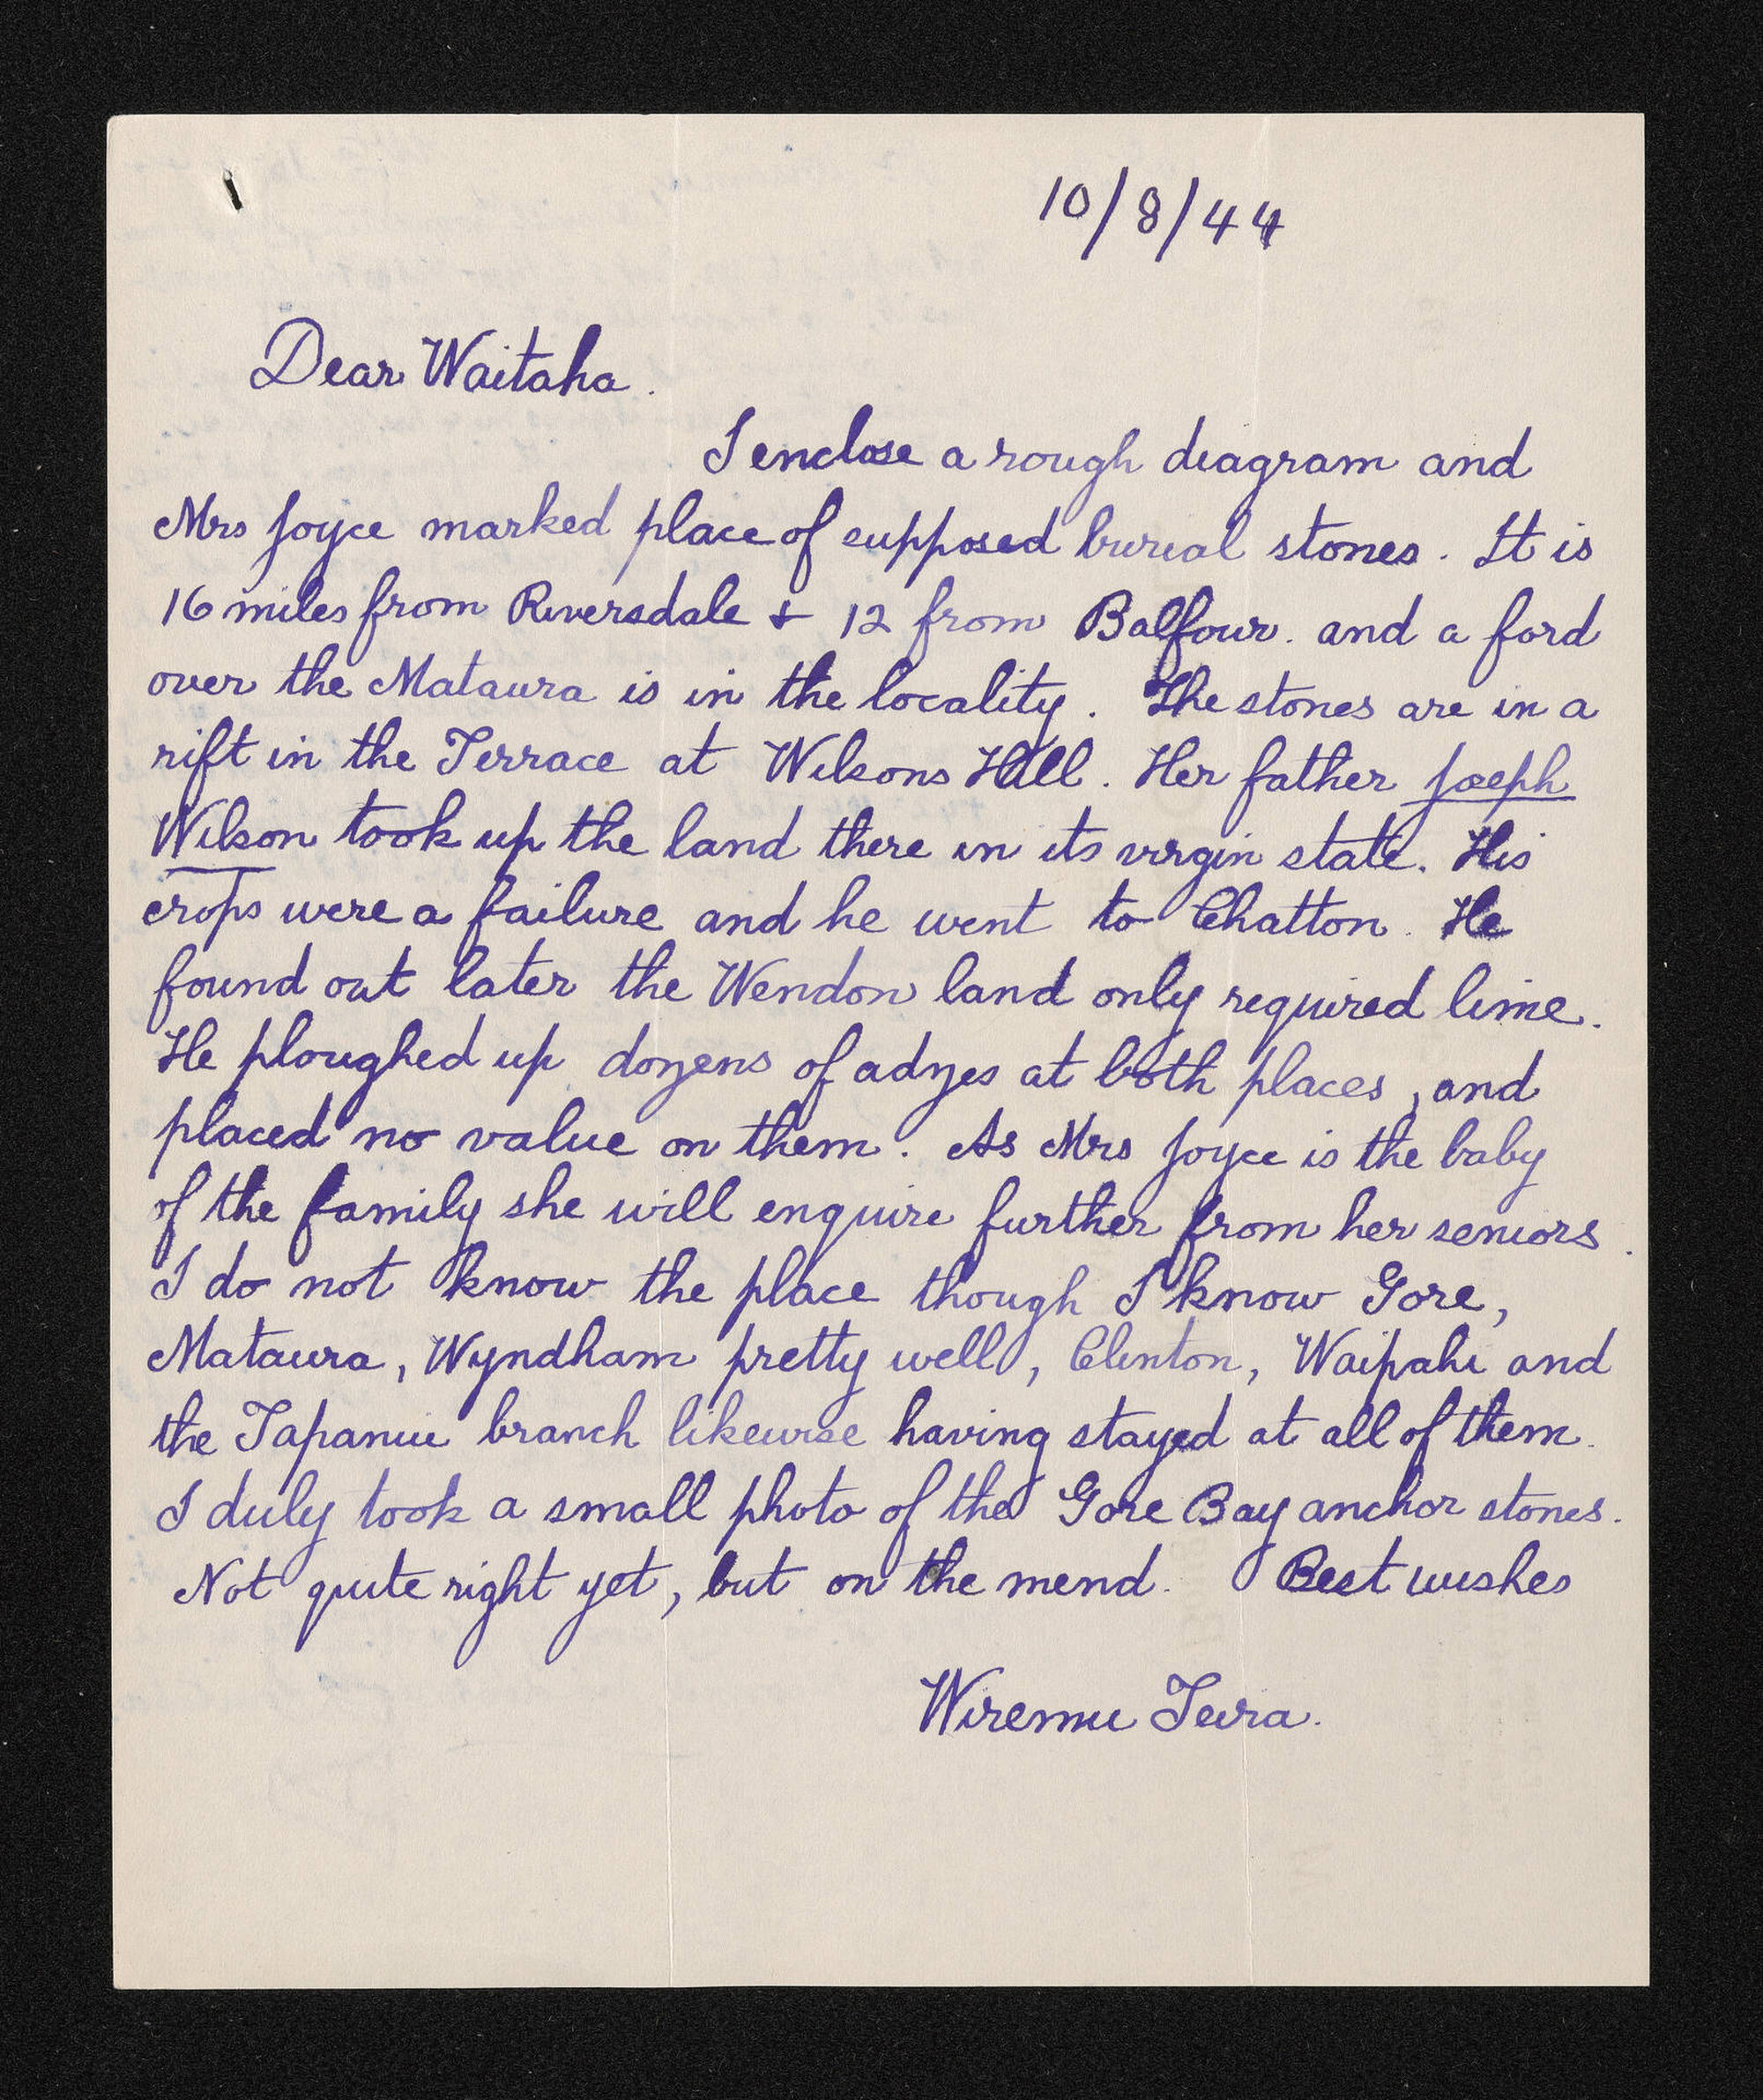 10/8/44
Dear Waitaha.
I enclose a rough diagram and
Mrs Joyce marked place of supposed burial stones. It is
16 miles from Riversdale & 12 from Balfour. and a ford
over the Mataura is in the locality. The stones are in a
rift in the Terrace at Wilsons Hill. Her father Joseph
Wilson took up the land there in its virgin state. His
crops were a failure and he went to Chatton. He
found out later the Wendon land only required lime.
He ploughed up dozens of adzes at both places, and
placed no value on them. As Mrs Joyce is the baby
of the family she will enquire further from her seniors.
I do not know the place though I know Gore,
Mataura, Wyndham pretty well, Clinton, Waipahi and
the Tapanui branch likewise having stayed at all of them.
I duly took a small photo of the Gore Bay anchor stones.
Not quite right yet, but on the mend. Best wishes
Wiremu Teira.